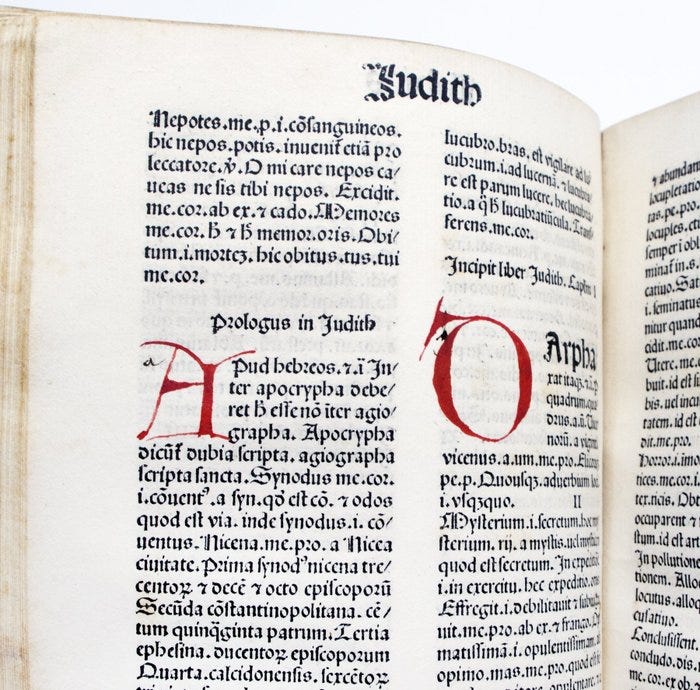 Judith
Nepotes.me.p.i.cōsanguineos.
hic nepos.potis. inuenit̄ etiā pro
leccatore.v̓. O mi care nepos ca/
ueas ne sis tibi nepos. Excidit.
me.cor.ab ex.⁊ cado. Memores
me.cor. h̄ ⁊ h̄ memor.oris. Obi/
tum.i.mortez. hic obitus.tus.tui
me.cor.
Prologus in Judith
a
APud hebreos.⁊.ī. In/
ter apocrypha debe/
ret h̄ esse nō īter agio/
grapha. Apocrypha
dicūt̄ dubia scripta. agiographa
scripta sancta. Synodus me.cor.
i.cōuentꝰ. a syn.qd̄ est cō. ⁊ odos
quod est via. inde synodus.i. cō/
uentus. Nicena.me.pro. a Nicea
ciuitate. Prima synodꝰ nicena tre/
centoꝝ ⁊ decē ⁊ octo episcoporū
Secūda cōstantinopolitana. cē/
tum quinq̄ginta patrum. Tertia
ephesina. ducentoꝝ episcoporum
Quarta. calcidonensis. sexcētoꝝ
lucubro.bras. est vigilare ad lu
cubrum.i.ad lucernā. ⁊ lucubra/
re est parum lucere. hec lucubra
tio.a q̄ h̄ lucubratiūcula. Trans
ferens.me.cor.
Incipit liber Judith. Caplm I
OArpha
xat itaqz.
quadrum.que
drus.a.ū.
norū. a viginti
vicenus.a.um.me.pro.
pe.p. Quousqz.aduerbium loc
i.vsqzquo. II
Mysterium.i.secretum.hoc my
sterium. rij. a mystis.vel mysticum
quod est secretum. In expeditiōe
i.in exercitu. hec expeditio.onis
Effregit.i.debilitauit ⁊
uit.me.pro.ab ex.⁊ frango.
matissimā.i. opulentissimam.
opimo.mas.me.pro.quod est
⁊ abundan
locupletatio
tas.pe.pro.
locuples.
semper i obl
minat̄ in.s.
catiuo.
i.seminatus
nitur quand
cidit.me.cor
Utere.me.
buit.id est
bis.vel incu
tatem.id est
dit.me.pro.
Horror.i.
tices.me.cor.i
ter.ticis. Obt
occuparent ⁊
stum.id est
In pollutione
tionem. Alloc
locutus.alloq
cusatiuo.
Conclusissent.
concludo.dis.
me.cor.ex ob.